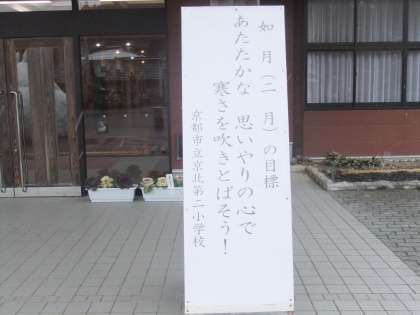 如月(二月)の目標
あたたかな 思いやりの心で
寒さを吹きとばそう!
京都市立京北第二小学校